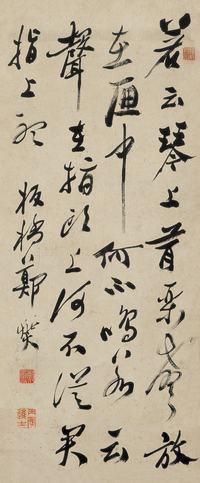 若云琴上放
在匣中何不鳴若云
聲在指頭上何不從君
指上聽 板橋鄭燮